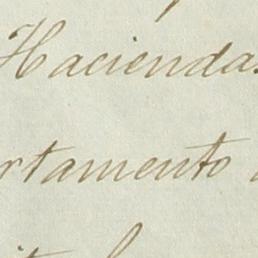 Hacienda.
rtamento